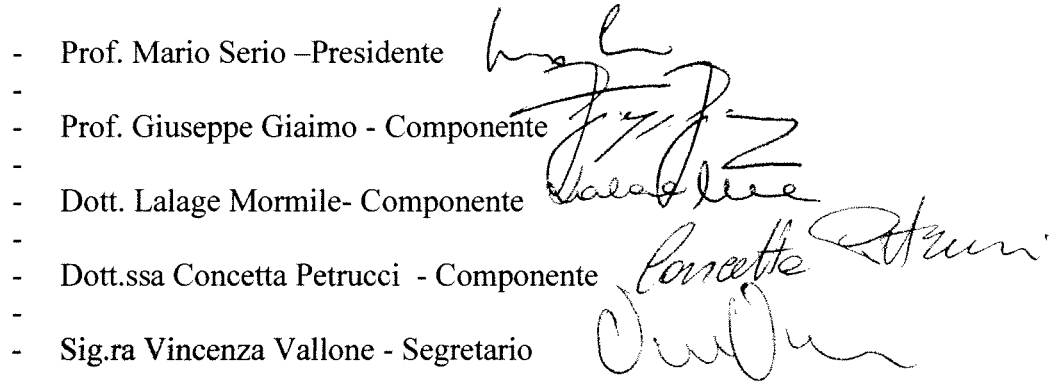 - Prof. Mario Serio –Presidente
-
- Prof. Giuseppe Giaimo - Componente
-
- Dott. Lalage Mormile- Componente
-
- Dott.ssa Concetta Petrucci - Componente Concetta Petrucci
-
- Sig.ra Vincenza Vallone - Segretario